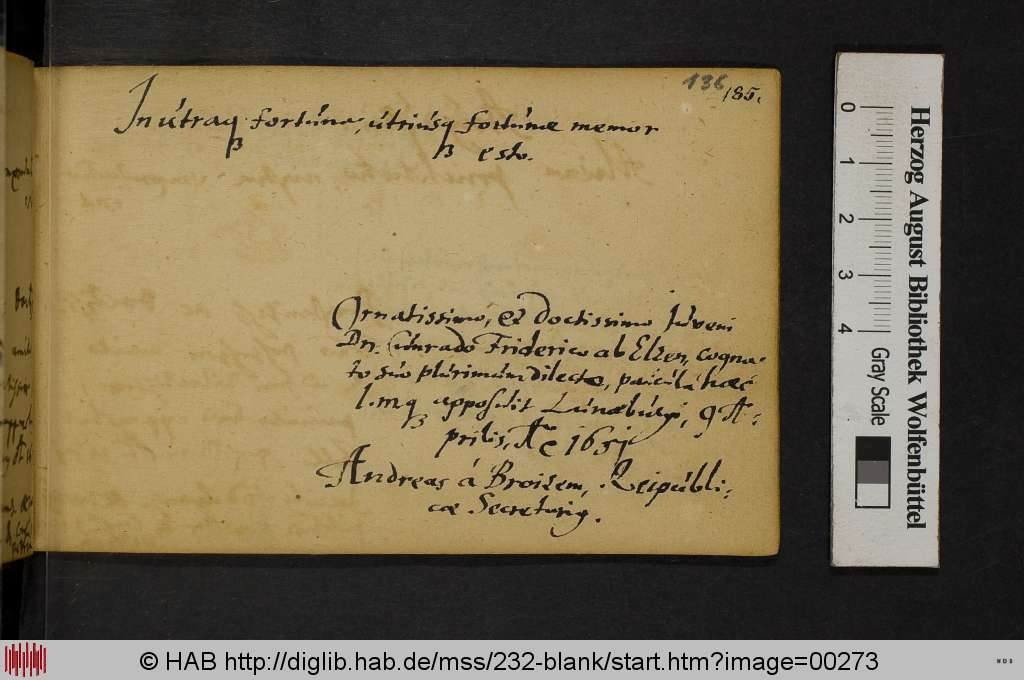 136
185.
In útraqꝫ fortúna, útriúsqꝫ fortúnæ memor
esto.
Ornatissimo, et Doctissimo Júveni
Dn. Cúnrado Friderico ab Elzen, cogna-
to súo plúrimúm dilecto, paúcúla haec
l. mqꝫ apposúit Lúnæbúrgi, 9 A-
prilis, Aº 1651
Andreas á Broizem, Reipúbli-
cæ Secretarius.
0
1
2
3
4
Gray Scale
Herzog August Bibliothek Wolfenbüttel
© HAB http://diglib.hab.de/mss/232-blank/start.htm?image=00273